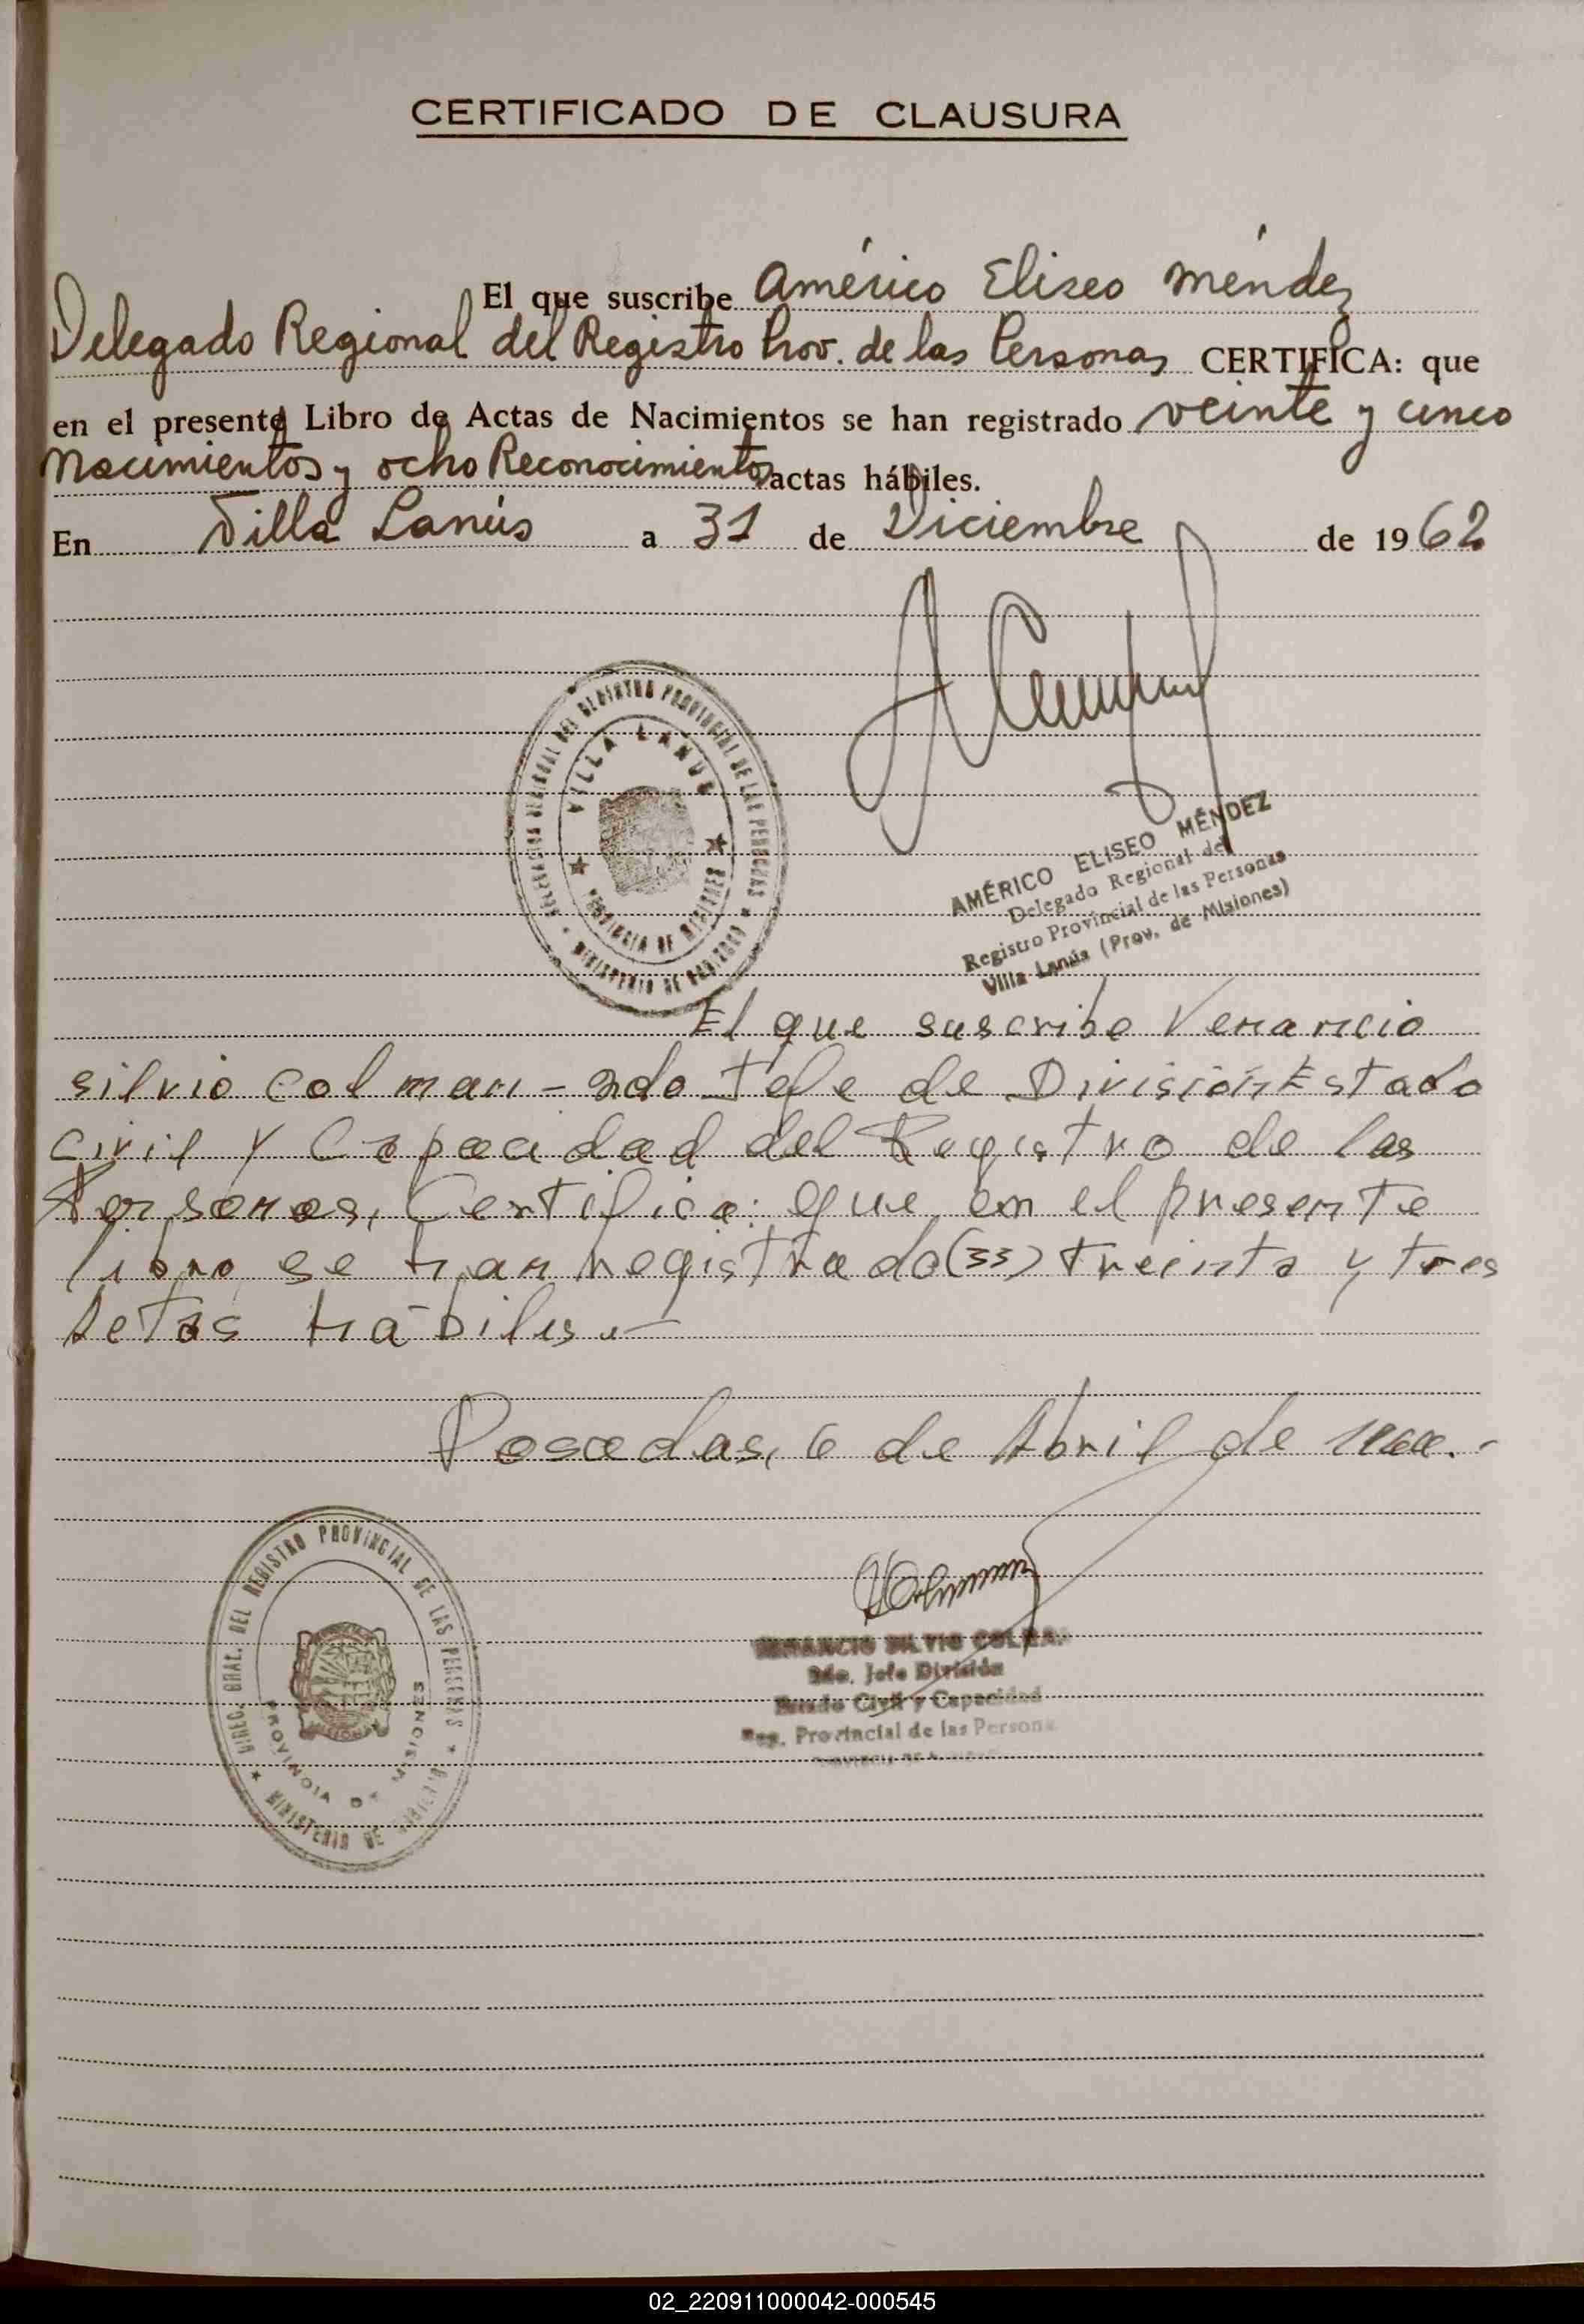 CERTIFICADO DE CLAUSURA
El que suscribe Américo Eliseo Méndez
Delegado Regional del Registro Prov. de las Personas CERTIFICA: que
en el presente Libro de Actas de Nacimientos se han registrado veinte y cinco
Nacimientos y ocho Reconocimientos actas hábiles.
En Villa Lanús a 31 de Diciembre de 1962
DELEGACION REGIONAL DEL REGISTRO PROVINCIAL DE LAS PERSONAS
VILLA LANUS
PROVINCIA DE MISIONES
MINISTERIO DE GOBIERNO
AMÉRICO ELISEO MÉNDEZ
Delegado Regional del
Registro Provincial de las Personas
Villa Lanús (Prov. de Misiones)
El que suscribe Venancio
silvio Colman - 2do Jefe de División Estado
Civil y Capacidad del Registro de las
Personas, Certifica: que en el presente
libro se han registrado (33) treinta y tres
Actas hábiles.-
Posadas, 6 de Abril de
DIREC. GRAL. DEL REGISTRO PROVINCIAL DE LAS PERSONAS
PROVINCIA DE MISIONES
MINISTERIO DE
VENANCIO SILVIO COLMAN
2do. Jefe División
Estado Civil y Capacidad
Reg. Provincial de las Persona
02_220911000042-000545